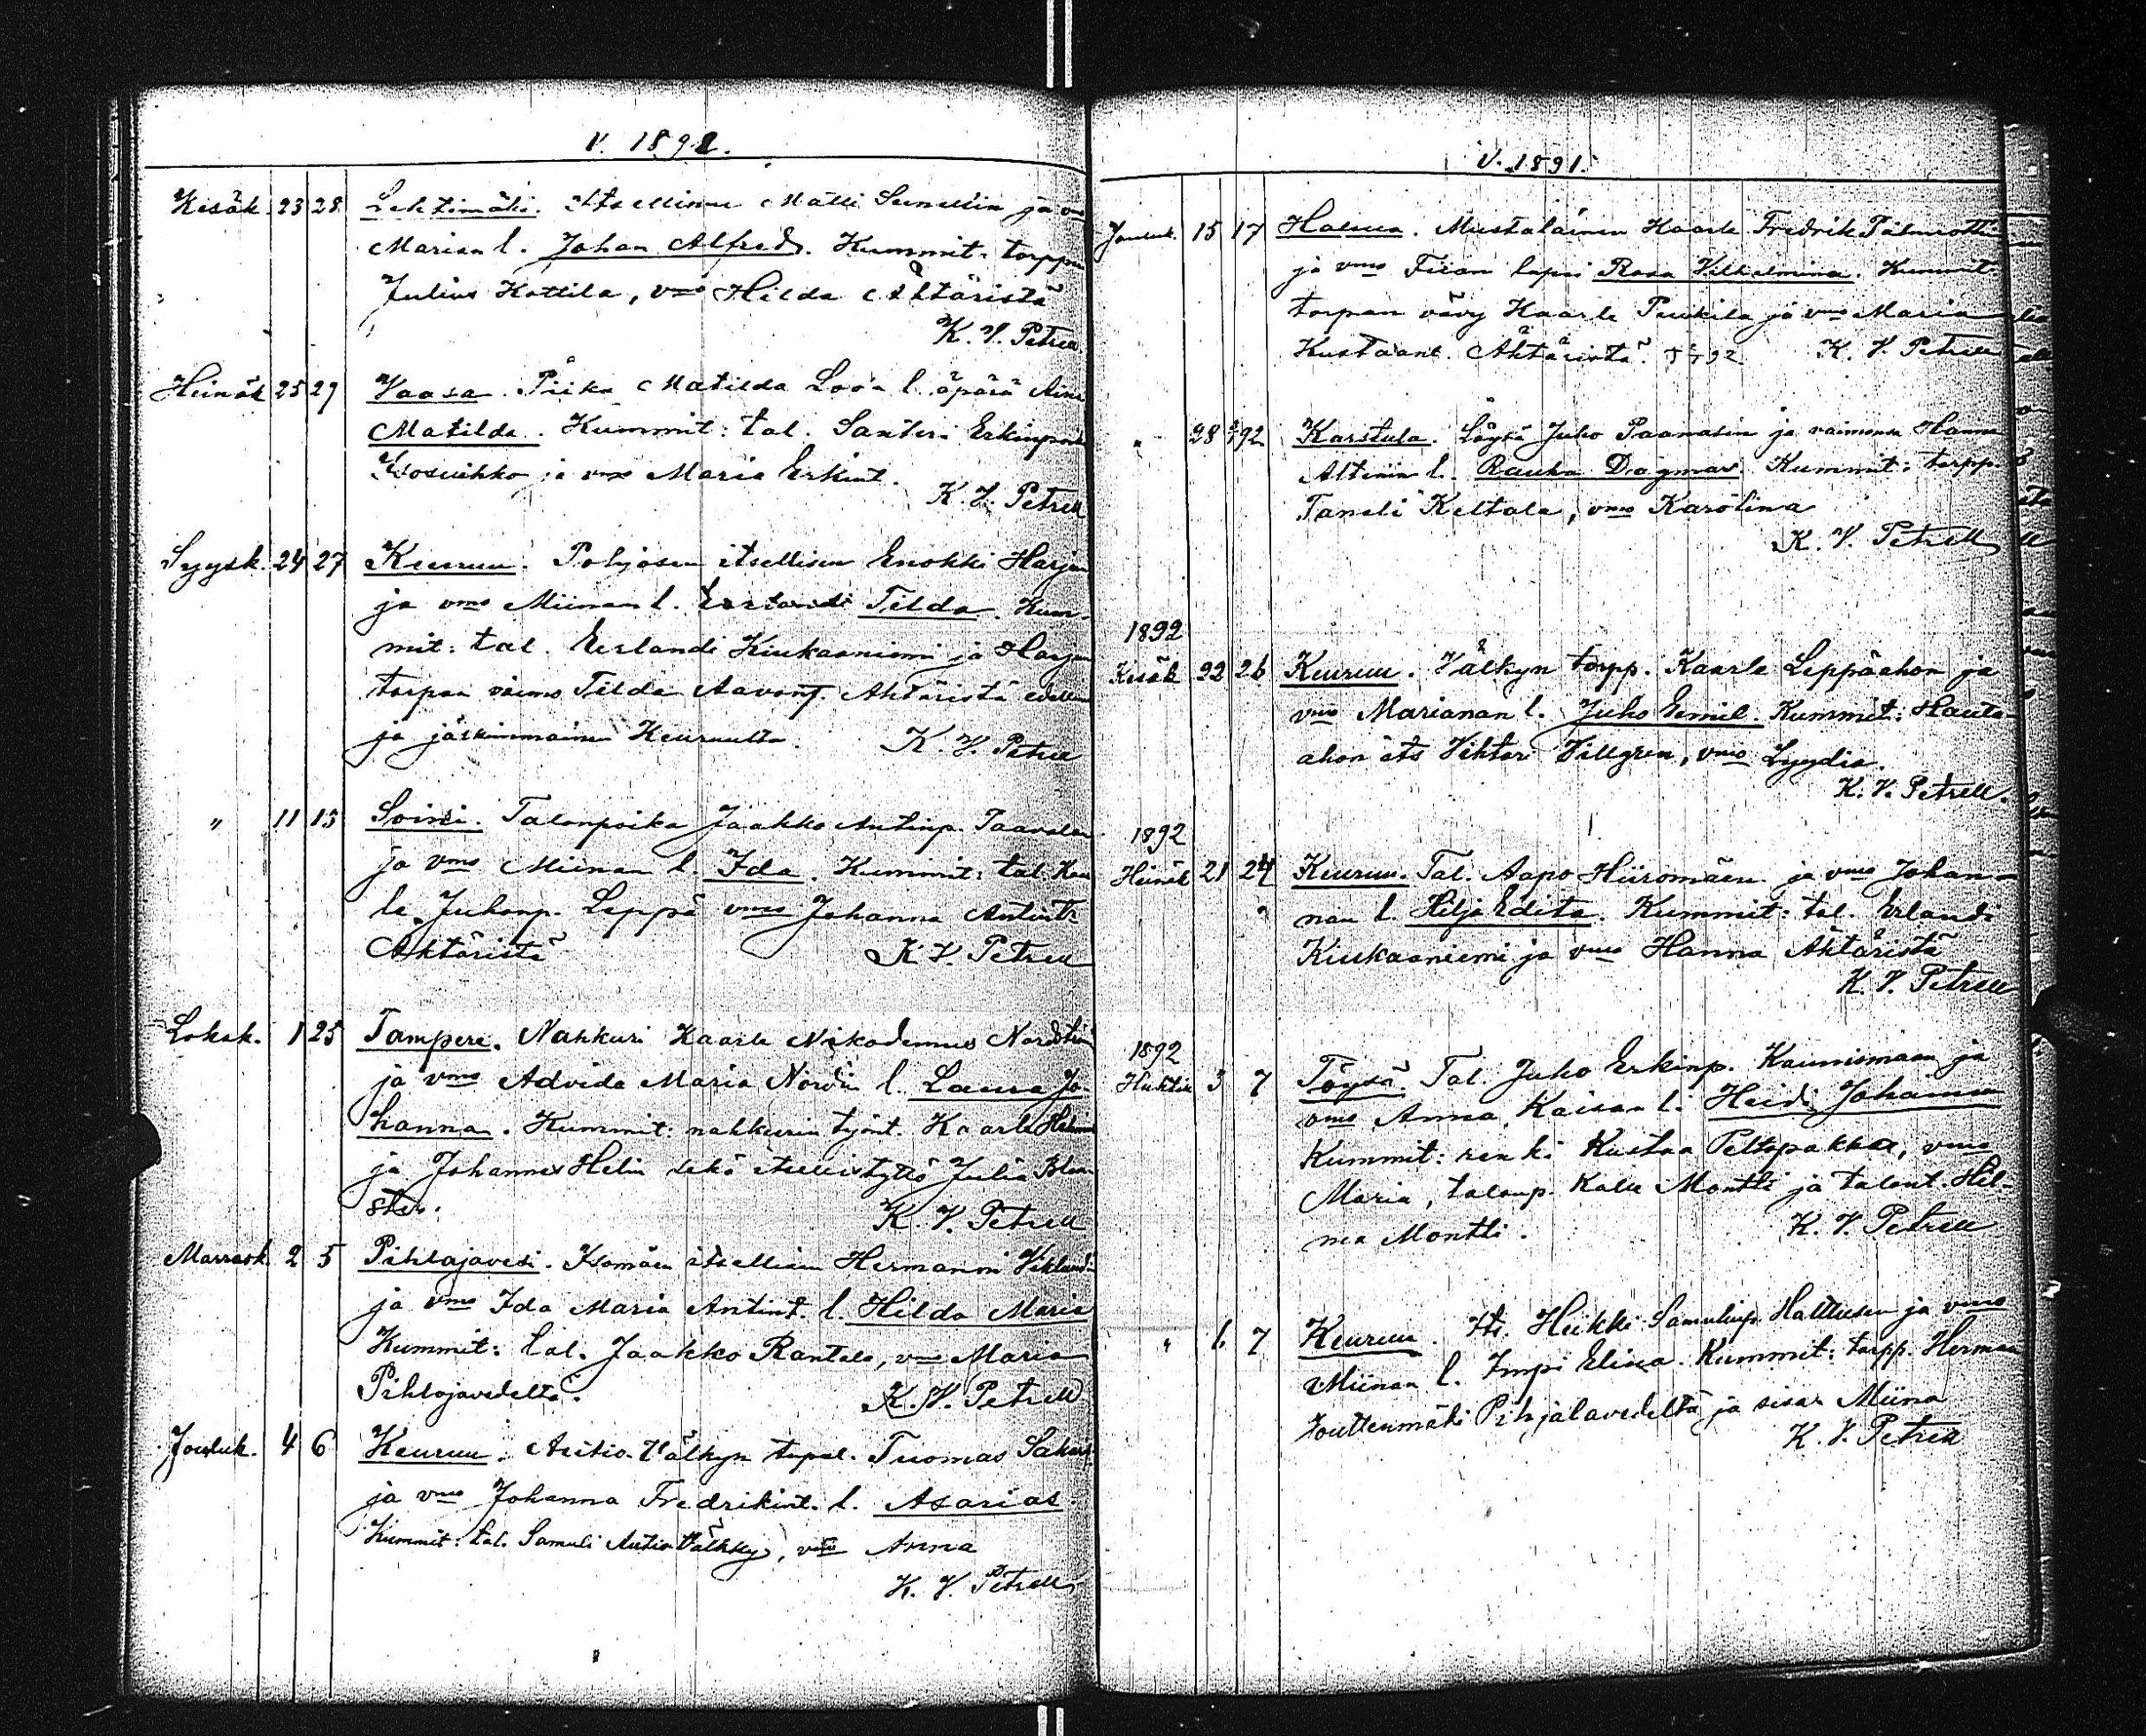 V. 1891.
Kesäk. 23 28 Lehtimäki. Itsellinen Matti Senellin ja vmo
Marian l. Johan Alfred. Kummit: torppa
Julius Kottila, vmo Hilda Ähtäristä
K. V. Petrell
Heinäk 25 27 Vaasa. Piika Matilda Loo'n l. äpärä Aina
Matilda. Kummit: tal. Santeri Erkinpoika
ja vmo Maria Erkint.
K. V. Petrell
Syysk. 24 27 Keuruu. Pohjosen itsellisen Enokki Harjun
ja vmo Miinan l. Tilda. Kum-
mit: tal. Eerlandi Kiukaaniemi ja Harjun
torpan vaimo Tilda Aavant. Ähtäristä edellinen
ja jälkimmäinen Keuruulta. K. V. Petrell
" 11 13 Soini. Talonpoika Jaakko Antinp. Taavalan
ja vmo Miinan l. Ida. Kummit: tal. Kaa
le Juhonp. Leppä vmo Johanna Antint.
Ähtäristä K. V. Petrell
Lokak. 1 25 Tampere. Nahkuri Kaarle Nikodemus Nordström
ja vmo Advida Maria Nordin l. Laura Jo-
hanna. Kummit: nahkurin työnt. Kaarle
ja Johannes Helin sekä itsellistyttö Julia Blom
ster. K. V. Petrell
Marrask. 2 5 Pihlajavesi. Isomäen itsellisen Hermanni Viklund
ja vmo Ida Maria Antint. l. Hilda Maria
Kummit: tal. Jaakko Rantala, vmo Maria
Pihlajavedeltä. K. V. Petrell
Jouluk. 4 6 Keuruu. Autio-Välkyn tupal. Tuomas Sakarip.
ja vmo Johanna Fredrikint. l. Asarias.
Kummit: tal. Samuli Autio Välkky, vmo Anna
K. V. Petrell
V. 1891.
Jouluk. 15 17 Halsua. Mustalainen Kaarle Fredrik Palmrotti
ja vmo Fiian lapsi Rosa Vilhelmina. Kummit
torpan vävy Kaarle Peukila ja vmo Maria
Kustaant. Ähtäristä. K. V. Petrell
" 28 92 Karstula. Löysä Juho Paanasen ja vaimonsa Hanna
l. Rauha Dagmar. Kummit: torpp.
Taneli Keltala, vmo Karolina
K. V. Petrell
1892
Kesäk 22 26 Keuruu. Välkyn torpp. Kaarle Leppäahon ja
vmo Marianan l. Juho Eemil. Kummit: Hauta-
ahon its Vihtori Villgren, vmo Lyydia.
K. V. Petrell.
1892
Heinäk 21 24 Keuruu. Tal. Aapo Hiiromäen ja vmo Johan-
nan l. Hilja Edita. Kummit: tal. Erlandi
Kiukaaniemi ja vmo Hanna Ähtäristä
K. V. Petrell
1892
Huhtik 3 7 Töysä. Tal. Juho Erkinp. Kaunismaan ja
vmo Anna Kaisan l. Heidi Johanna
Kummit: renki Kustaa Peltopakka, vmo
Maria, talonp. Kalle Montti ja talont. Hil-
ma Montti. K. V. Petrell
" 6 7 Keuruu. Its. Heikki Samulinp. Halttusen ja vmo
Miinan l. Impi Elina. Kummit: torpp. Herman
Jouttenmäki Pihjalavedeltä ja sisar Miina
K. V. Petrell